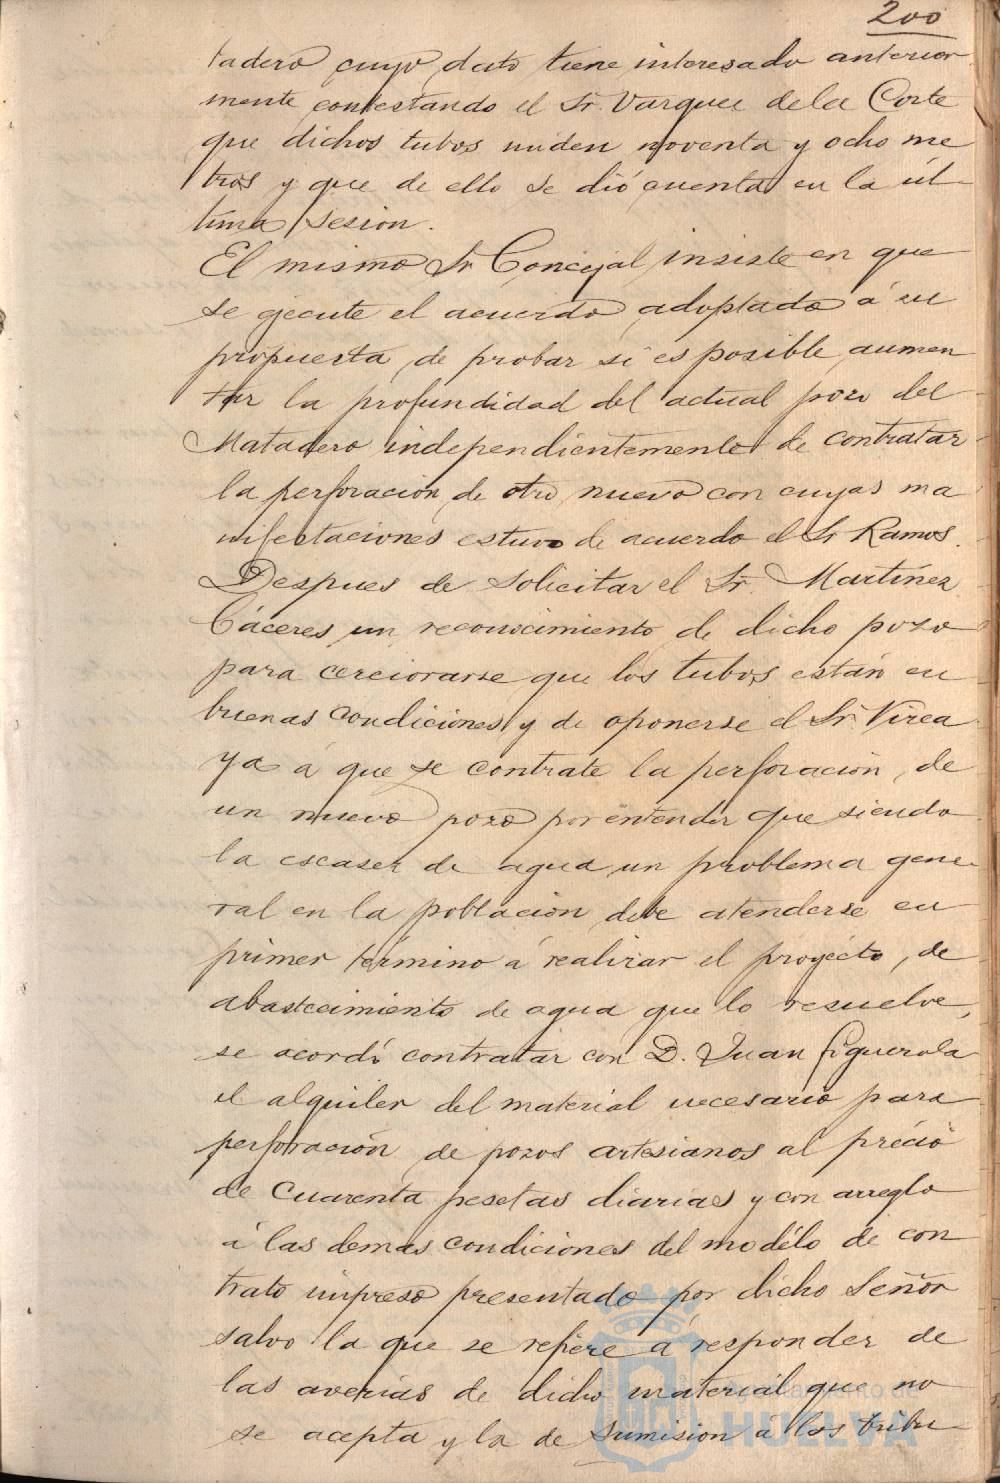 200
tadero cuyo dato tiene interesado anterior
mente contestando el Sr. Vazquez de la Corte
que dichos tubos miden noventa y ocho me
tros y que de ello se dió cuenta en la úl
tima sesion.
El mismo Sr Concejal insiste en que
se ejecute el acuerdo adoptado á su
propuesta de probar si es posible aumen
tar la profundidad del actual pozo del
Matadero independientemente de contratar
la perforación de otro nuevo con cuyas ma
nifestaciones estuvo de acuerdo el Sr Ramos.
Despues de solicitar el Sr. Martínez
Cáceres un reconocimiento de dicho pozo
para cerciorarse que los tubos están en
buenas condiciones y de oponerse el Sr. Vizca
ya á que se contrate la perforación de
un nuevo pozo por entender que siendo
la escasez de agua un problema gene
ral en la población debe atenderse en
primer término á realizar el proyecto, de
abastecimiento de agua que lo resuelve,
se acordó contratar con D. Juan Figuerola
el alquiler del material necesario para
perforación de pozos artesianos al precio
de cuarenta pesetas diarias y con arreglo
á las demas condiciones del modélo de con
trato impreso presentado por dicho Señor
salvo la que se refiere á responder de
las averias de dicho material que no
se acepta y la de sumision a los tribu
Ayuntamiento de
HUELVA